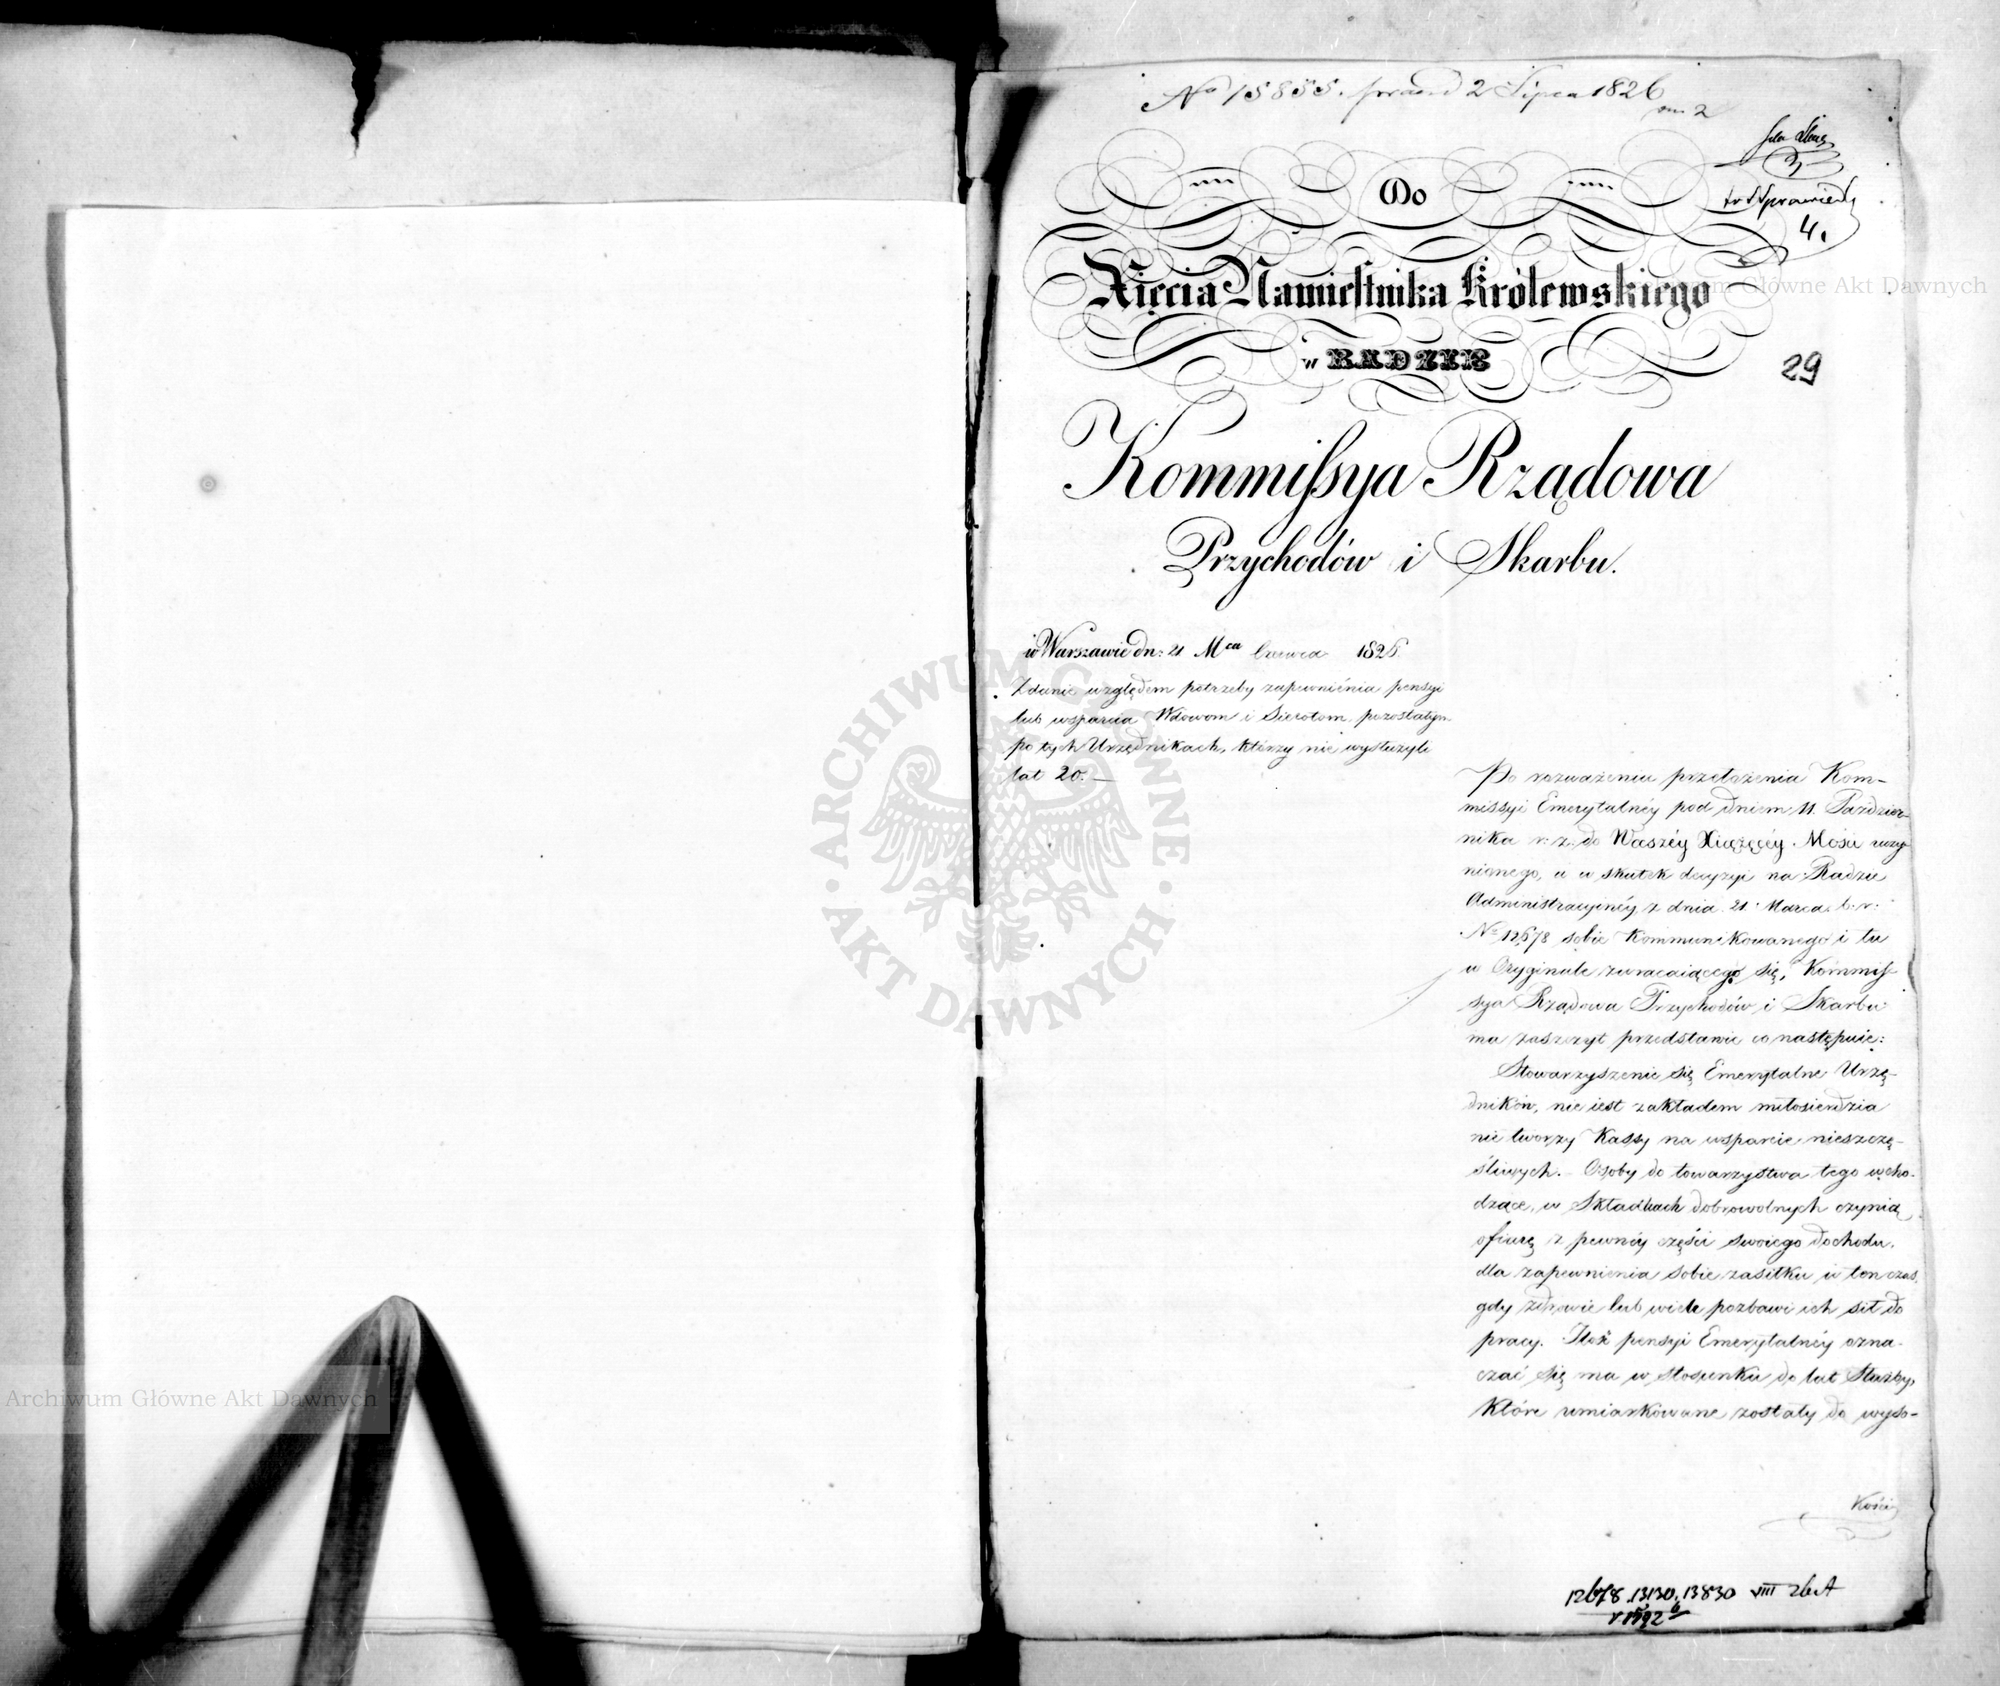 No 15855. praes d 2 Lipca 1826
Do
Xięcia Namiestnika Królewskiego
w RADZIE
29
4.
Kommissya Rządowa
Przychodów i Skarbu.
w Warszawie dn: 21 Mca Czerwca 1826.
Zdanie względem potrzeby zapewnienia pensyi
lub wsparcia Wdowom i Sierotom, pozostałym
po tych Urzędnikach, którzy nie wysłużyli
lat 20.—
Po rozważeniu przełożenia Kom-
missyi Emerytalnéy pod dniem 11. Paździer-
nika r: z: do Waszéy Xiążęcéy Mości uczy-
nionego, a w skutek decyzyi na Radzie
Administracyinéy z dnia 21 Marca b. r:
No 12,678 sobie Kommunikowanego i tu
w Oryginale zwracaiącego się, Kommis-
sya Rządowa Przychodów i Skarbu
ma zaszczyt przedstawić co następuie:
Stowarzyszenie się Emerytalne Urzę-
dników, nie iest zakładem miłosierdzia
nie tworzy Kassy na wsparcie nieszczę-
śliwych.— Osoby do towarzystwa tego wcho-
dzące, w Składkach dobrowolnych czynią
ofiarę z pewnéy części swoiego dochodu,
dla zapewnienia sobie zasiłku w ten czas,
gdy zdrowie lub wiek pozbawi ich sił do
pracy. Ilość pensyi Emerytalnéy ozna-
czać się ma w stosunku do lat Służby,
Które umiarkowane zostały do wyso-
kości
12678, 13130, 13830 VIII
ARCHIWUM GŁÓWNE AKT DAWNYCH
Archiwum Główne Akt Dawnych
Archiwum Główne Akt Dawnych